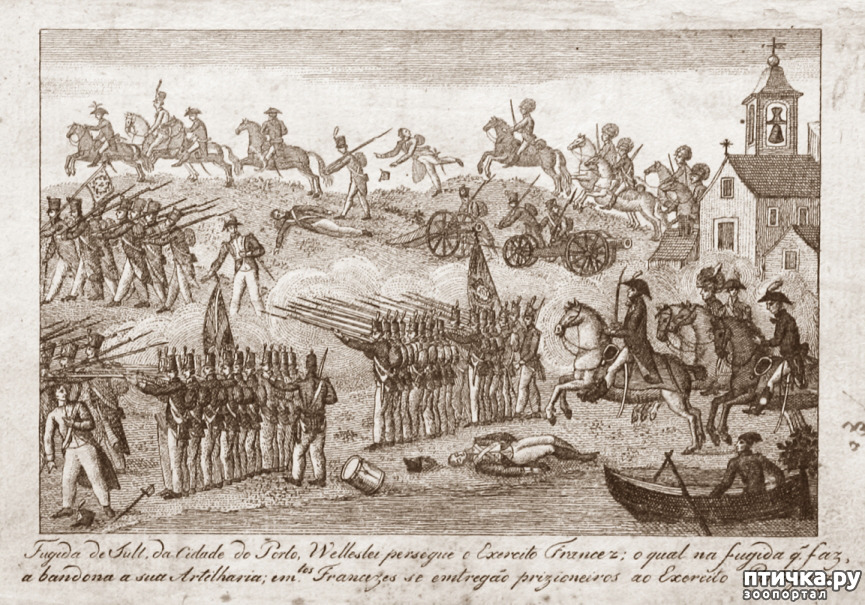 Fugida de Sult. da Cidade do Porto, Welleslei persegue o Exercito Francez; o qual na fugida q̃. faz,
a bandona a sua Artilharia; em.tos Francezes se emtregão prizioneiros ao Exercito
птичка.ру
зоопортал